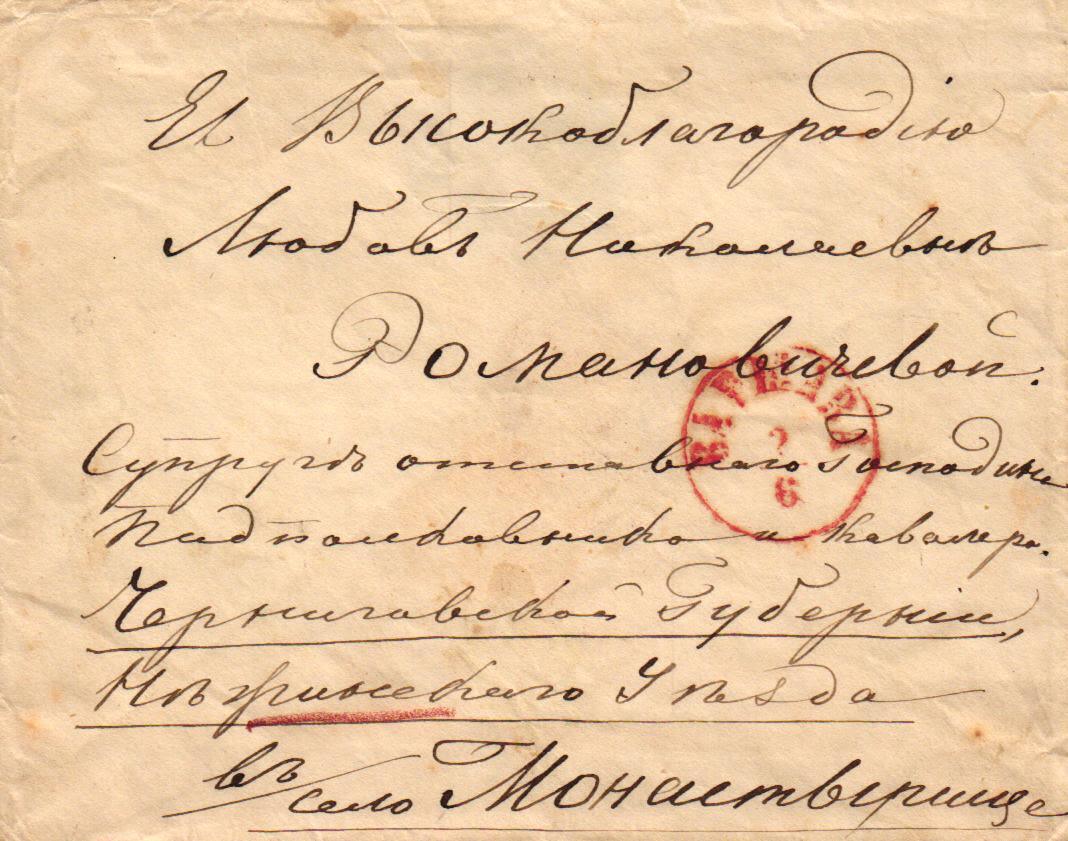 Ея Высокоблагородію
Любовѣ Николаевнѣ
Романовичевой.
Супругѣ отставнаго Господина
Подполковника и Кавалера.
Черниговской Губерніи,
Нѣжинскаго Уѣзда
въ село Монастырище
2
6